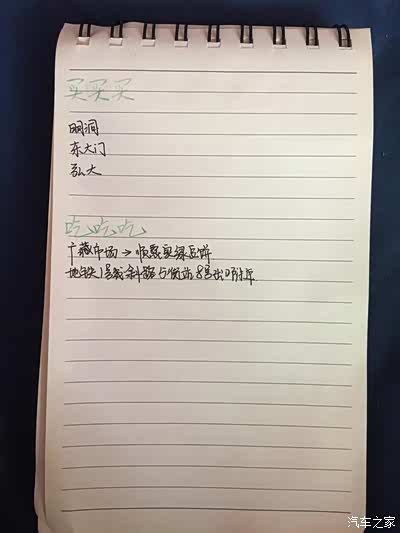 买买买
明洞
东大门
弘大
吃吃吃
广藏市场→顺熙家绿豆饼
地铁1号线钟路5街站8号出口附近
汽车之家